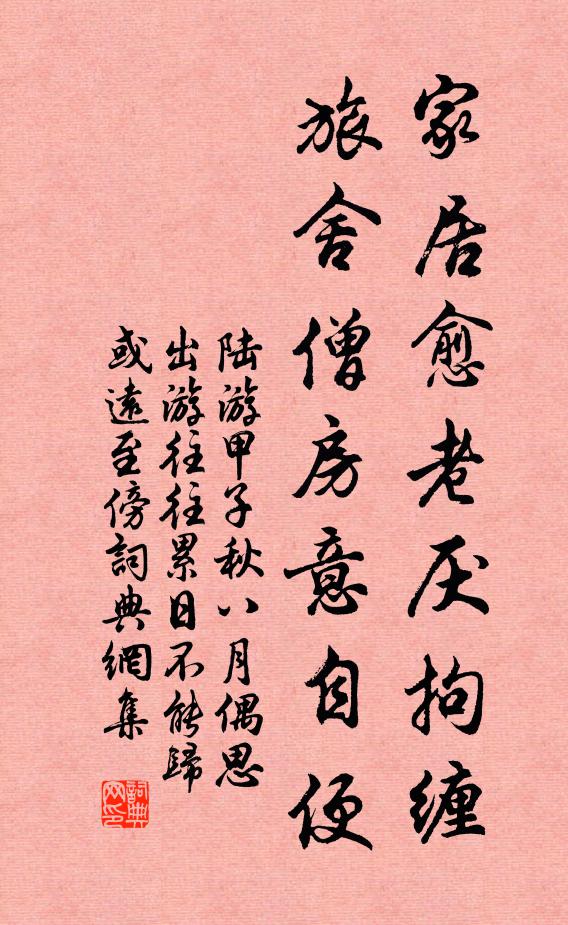 家居愈老厌拘缠
旅舍僧房意自便
陆游甲子秋八月偶思
出游往往累日不能歸
或遠至傍詞典網集
詞典
网印